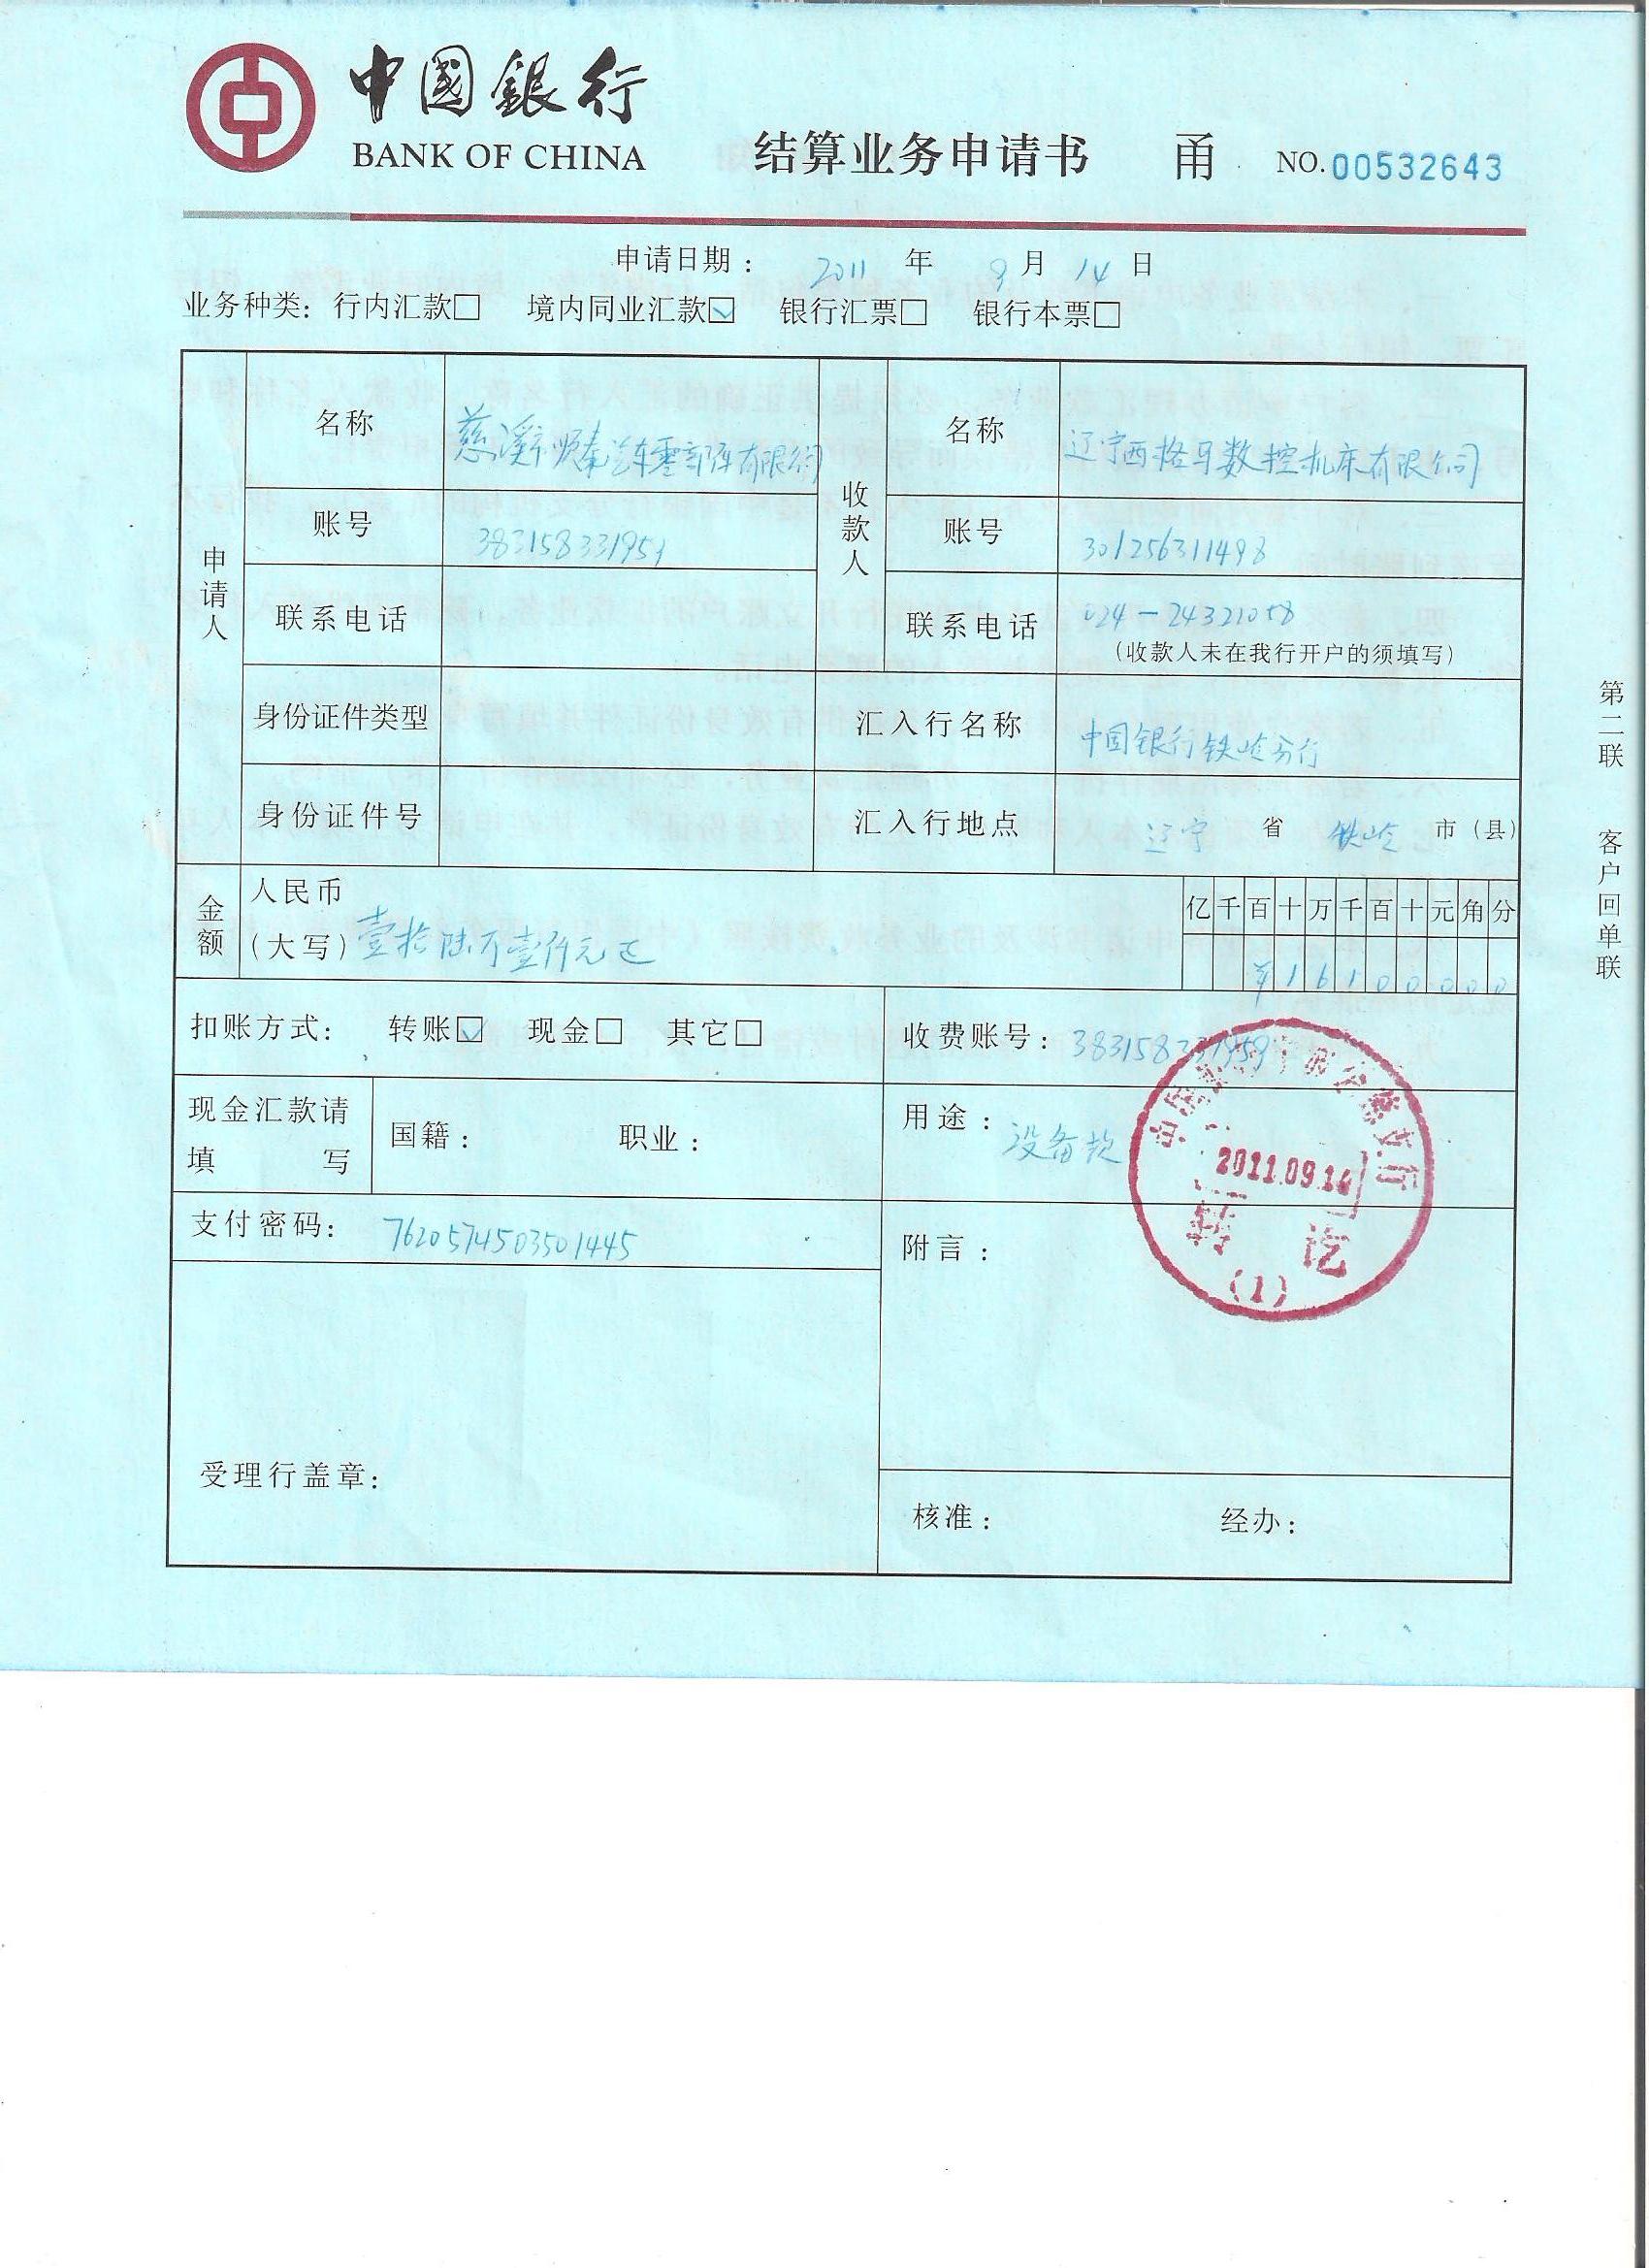 中國銀行
BANK OF CHINA
结算业务申请书 甬 NO.00532643
申请日期: 2011 年 9 月 14 日
业务种类: 行内汇款□ 境内同业汇款☑ 银行汇票□ 银行本票□
申请人
名称 慈溪市顺泰汽车零部件有限公司
账号 38315833195
联系电话
身份证件类型
身份证件号
收款人
名称 辽宁西格马数控机床有限公司
账号 301256311498
联系电话 024-24321058
(收款人未在我行开户的须填写)
汇入行名称 中国银行铁岭分行
汇入行地点 辽宁 省 铁岭 市(县)
金额
人民币
(大写) 壹拾陆万壹仟元正
亿千百十万千百十元角分
¥16100000
扣账方式: 转账☑ 现金□ 其它□
收费账号: 383158331959
现金汇款请
填 写
国籍: 职业:
用途: 设备款
支付密码: 7620574503501445
附言:
2011.09.14
转 讫
(1)
受理行盖章:
核准: 经办:
第二联 客户回单联